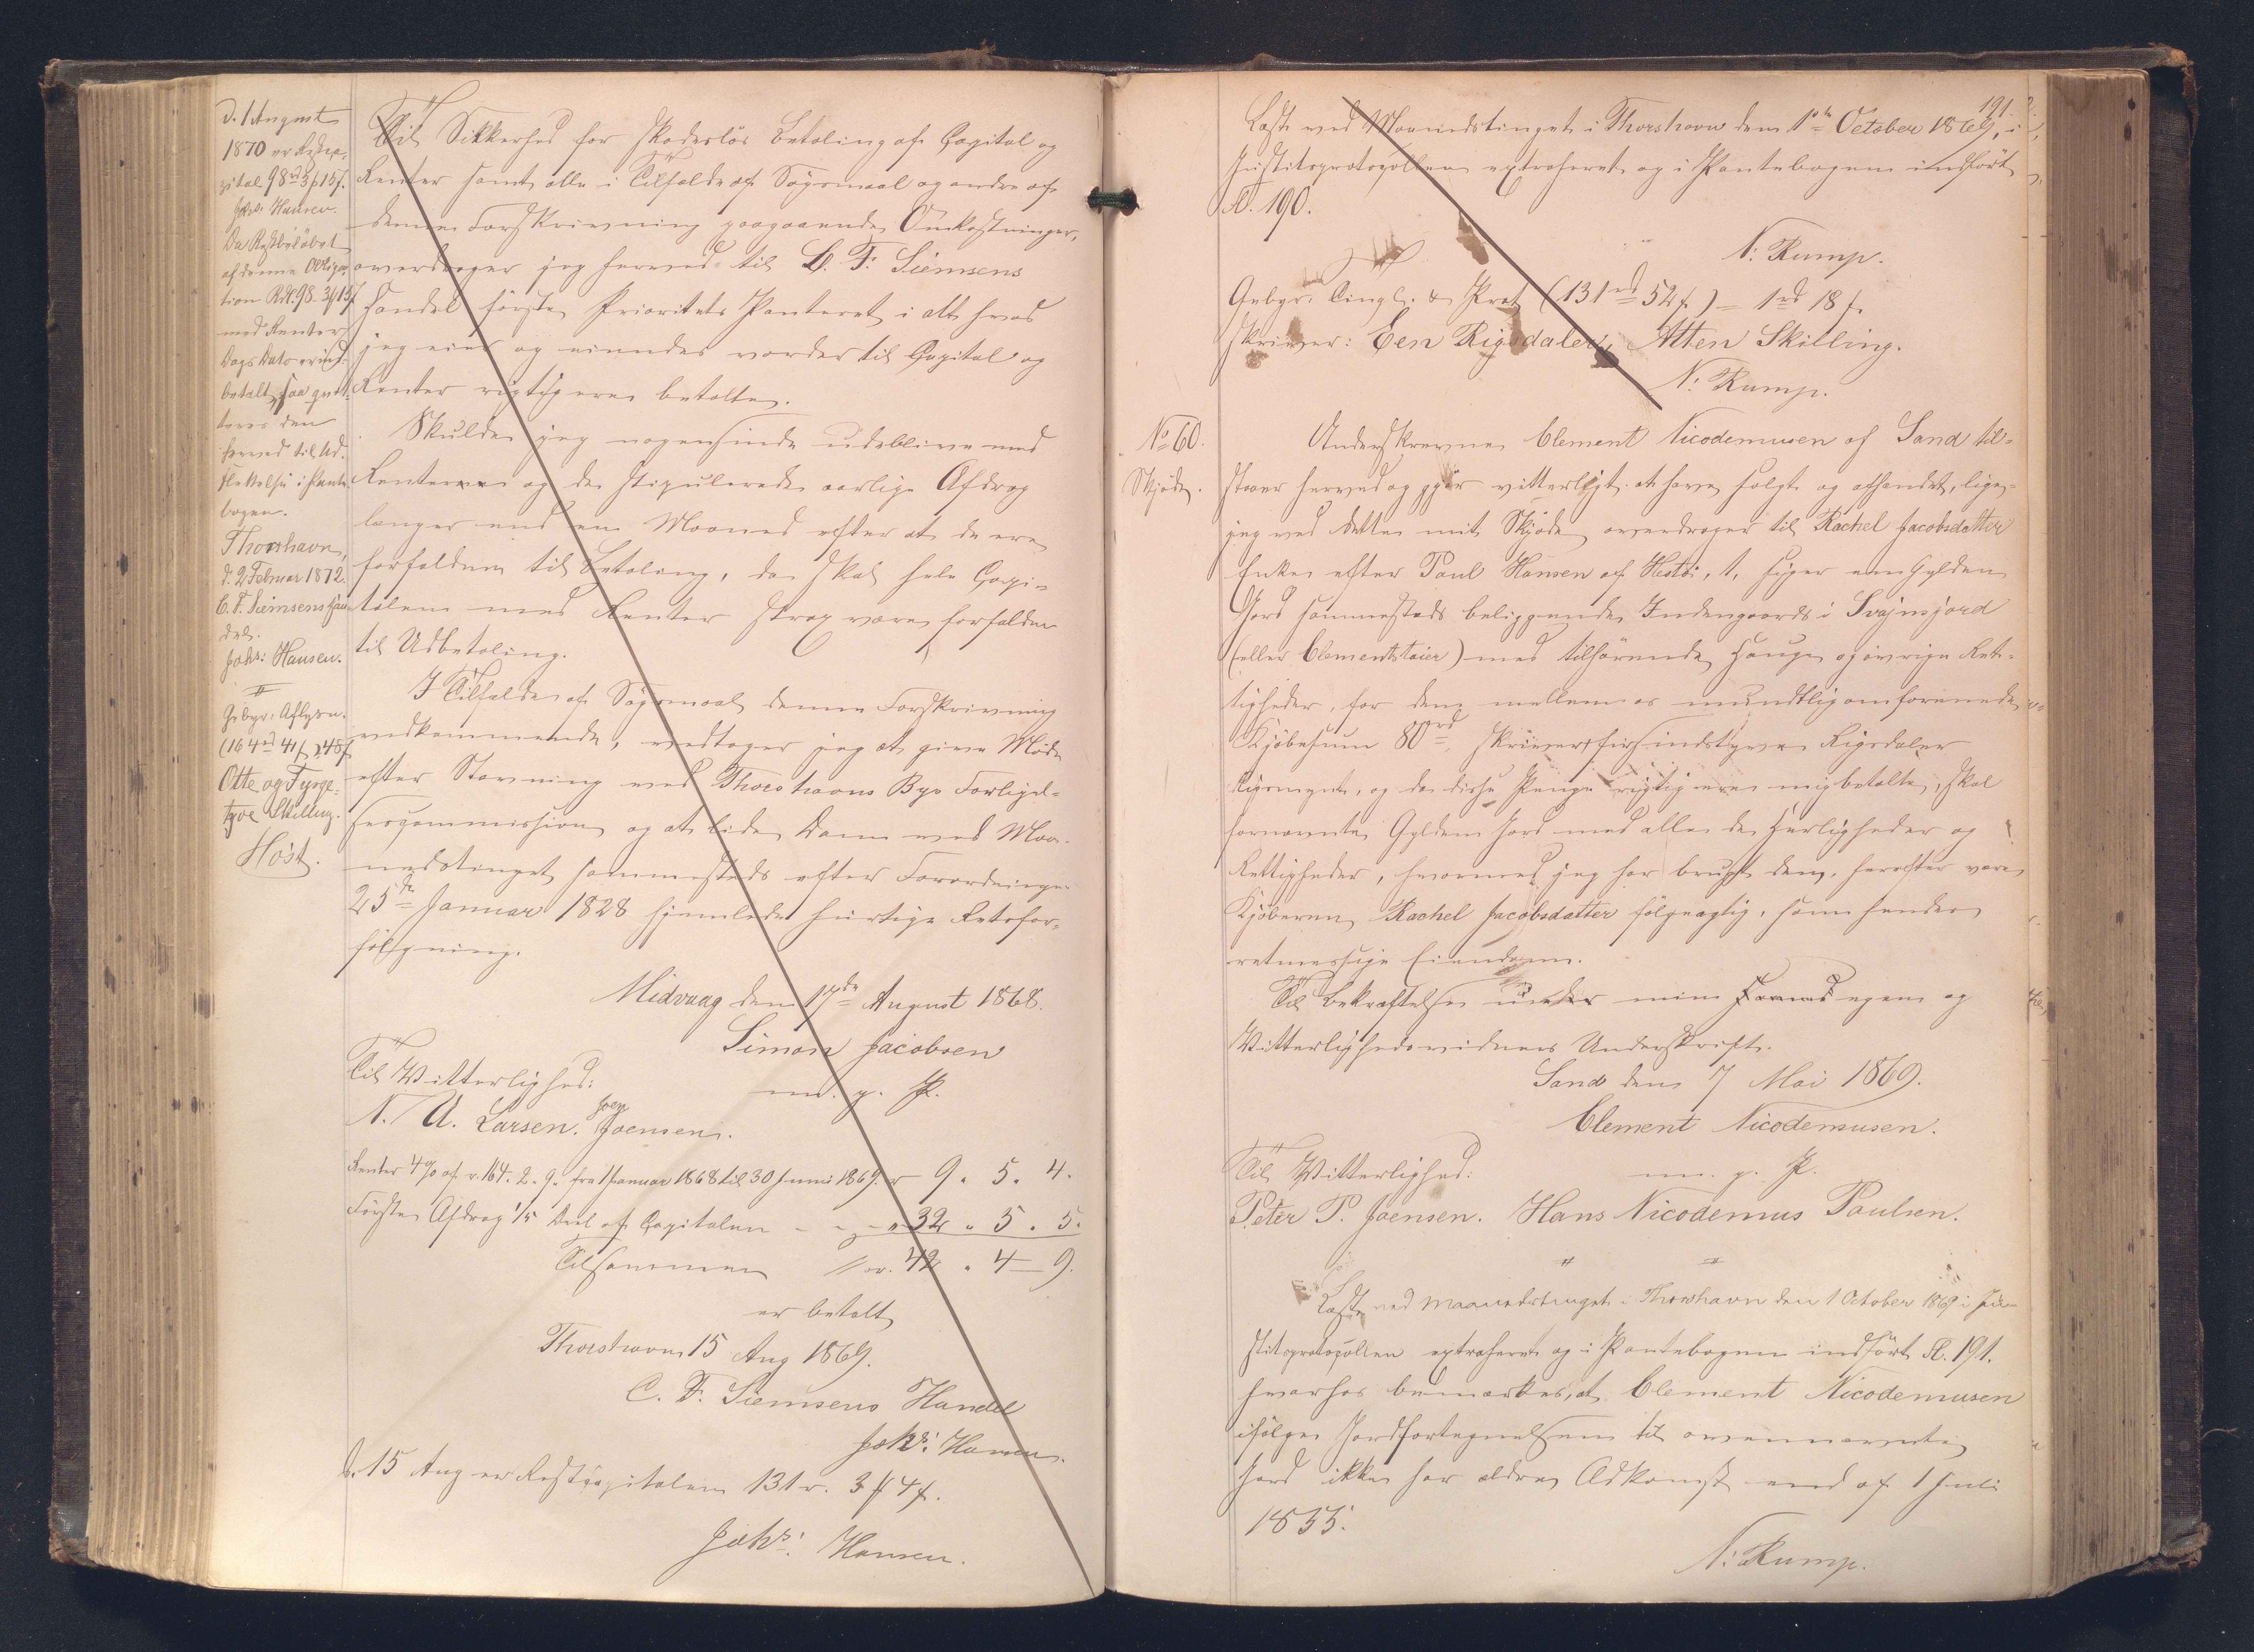 d. 1 August
1870 er Restca-
pital 98 rd 3 ƒ 15 ſ.
Johs: Hansen.
Da Restbeløbet
af denne Obliga-
tion Rdl. 98. 3 ƒ 15 ſ
med Renter
Dags Dato er ind-
betalt, saa qvit-
teres den
herved til Ud-
slettelse i Pante
bogen.
Thorshavn,
d. 2 Februar 1872.
C. F. Siemsens Han-
del.
Johs: Hansen.
Gebyr: Aflysn.
(164 rd 41 ſ) 48 ſ
Otte og Fyrge-
tyve Skilling.
Høst.
Til Sikkerhed for skadesløs Betaling af Capital og
Renter samt alle i Tilfælde af Søgsmaal og andre af
denne Forskrivning paagaaende Omkostninger,
overdrager jeg herved til C. F. Siemsens
Handel første Prioritets Panteret i alt hvad
jeg eier og eiendes vorder til Capital og
Renter rigtig ere betalte.
Skulde jeg nogensinde udeblive med
Renterne og de stipulerede aarlige Afdrag
længer end en Maaned efter at de ere
forfaldne til Betaling, da skal hele Capi-
talen med Renter strax være forfalden
til Udbetaling.
I Tilfælde af Søgsmaal denne Forskrivning
vedkommende, vedtager jeg at give Møde
efter Stævning ved Thorshavns Byes Forligel-
sescommission og at lide Dom ved Maa-
nedstinget sammesteds efter Forordningen
25de Januar 1828 hjemlede hurtige Retsfor-
følgning.
Midvaag den 17de August 1868.
Simon Jacobsen
m. p. P.
Til Vitterlighed:
N. U. Larsen. Joen Joensen.
Renter 4 % af r. 164. 2. 9. fra 1 Januar 1868 til 30 Juni 1869. r 9. 5. 4.
Første Afdrag 1/5 Deel af Capitalen - - - " 32 " 5. 5.
Tilsammen r. 42 " 4 – 9.
er betalt
Thorshavn 15 Aug 1869.
C. F. Siemsens Handel
Johs: Hansen.
d. 15 Aug er Restcapitalen 131 r. 3 ƒ 4 ſ.
Johs: Hansen.
191.
Læst ved Maanedstinget i Thorshavn den 1ste October 1869, i
Justitsprotocollen extraheret og i Pantebogen indført
Fol. 190.
N: Rump.
Gebyr. Tingl. & Prot (131 rd 52 ſ) = 1 rd 18 ſ.
skriver: Een Rigsdaler, Atten Skilling.
N: Rump.
No 60.
Skjøde.
Underskrevne Clement Nicodemusen af Sand til-
staaer herved og gjør vitterligt at have solgt og afhændet, lige-
jeg ved dette mit Skjøde overdrager til Rachel Jacobsdatter
Enke efter Poul Hansen af Hestø, 1, siger een Gylden
Jord sammesteds beliggende Indengaards i Svajnsjord
(eller Clementstoier) med tilhørende Hauge og øvrige Ret-
tigheder, for den mellem os mundtlig omforenede
Kjøbesum 80 rd, skriver: firsindstyve Rigsdaler
Rigsmynt, og da disse Penge rigtig ere mig betalte, skal
fornævnte Gylden Jord med alle de Herligheder og
Rettigheder, hvormed jeg har brugt den, herefter være
Kjøberen Rachel Jacobsdatter følgagtig, som hendes
retmæssige Eiendom.
Til Bekræftelse under min Haand egen og
Vitterlighedsvidners Underskrift.
Sand den 7 Mai 1869.
Clement Nicodemusen.
m. p. P.
Til Vitterlighed:
Peter P. Joensen. Hans Nicodemus Poulsen.
Læst ved Maanedstinget i Thorshavn den 1 October 1869 i Ju-
stitsprotocollen extraheret og i Pantebogen indført Fol. 191.
hvorhos bemærkes, at Clement Nicodemusen
ifølge Jordfortegnelsen til ovennævnte
Jord ikke har ældre Adkomst end af 1 Juli
1855.
N: Rump.